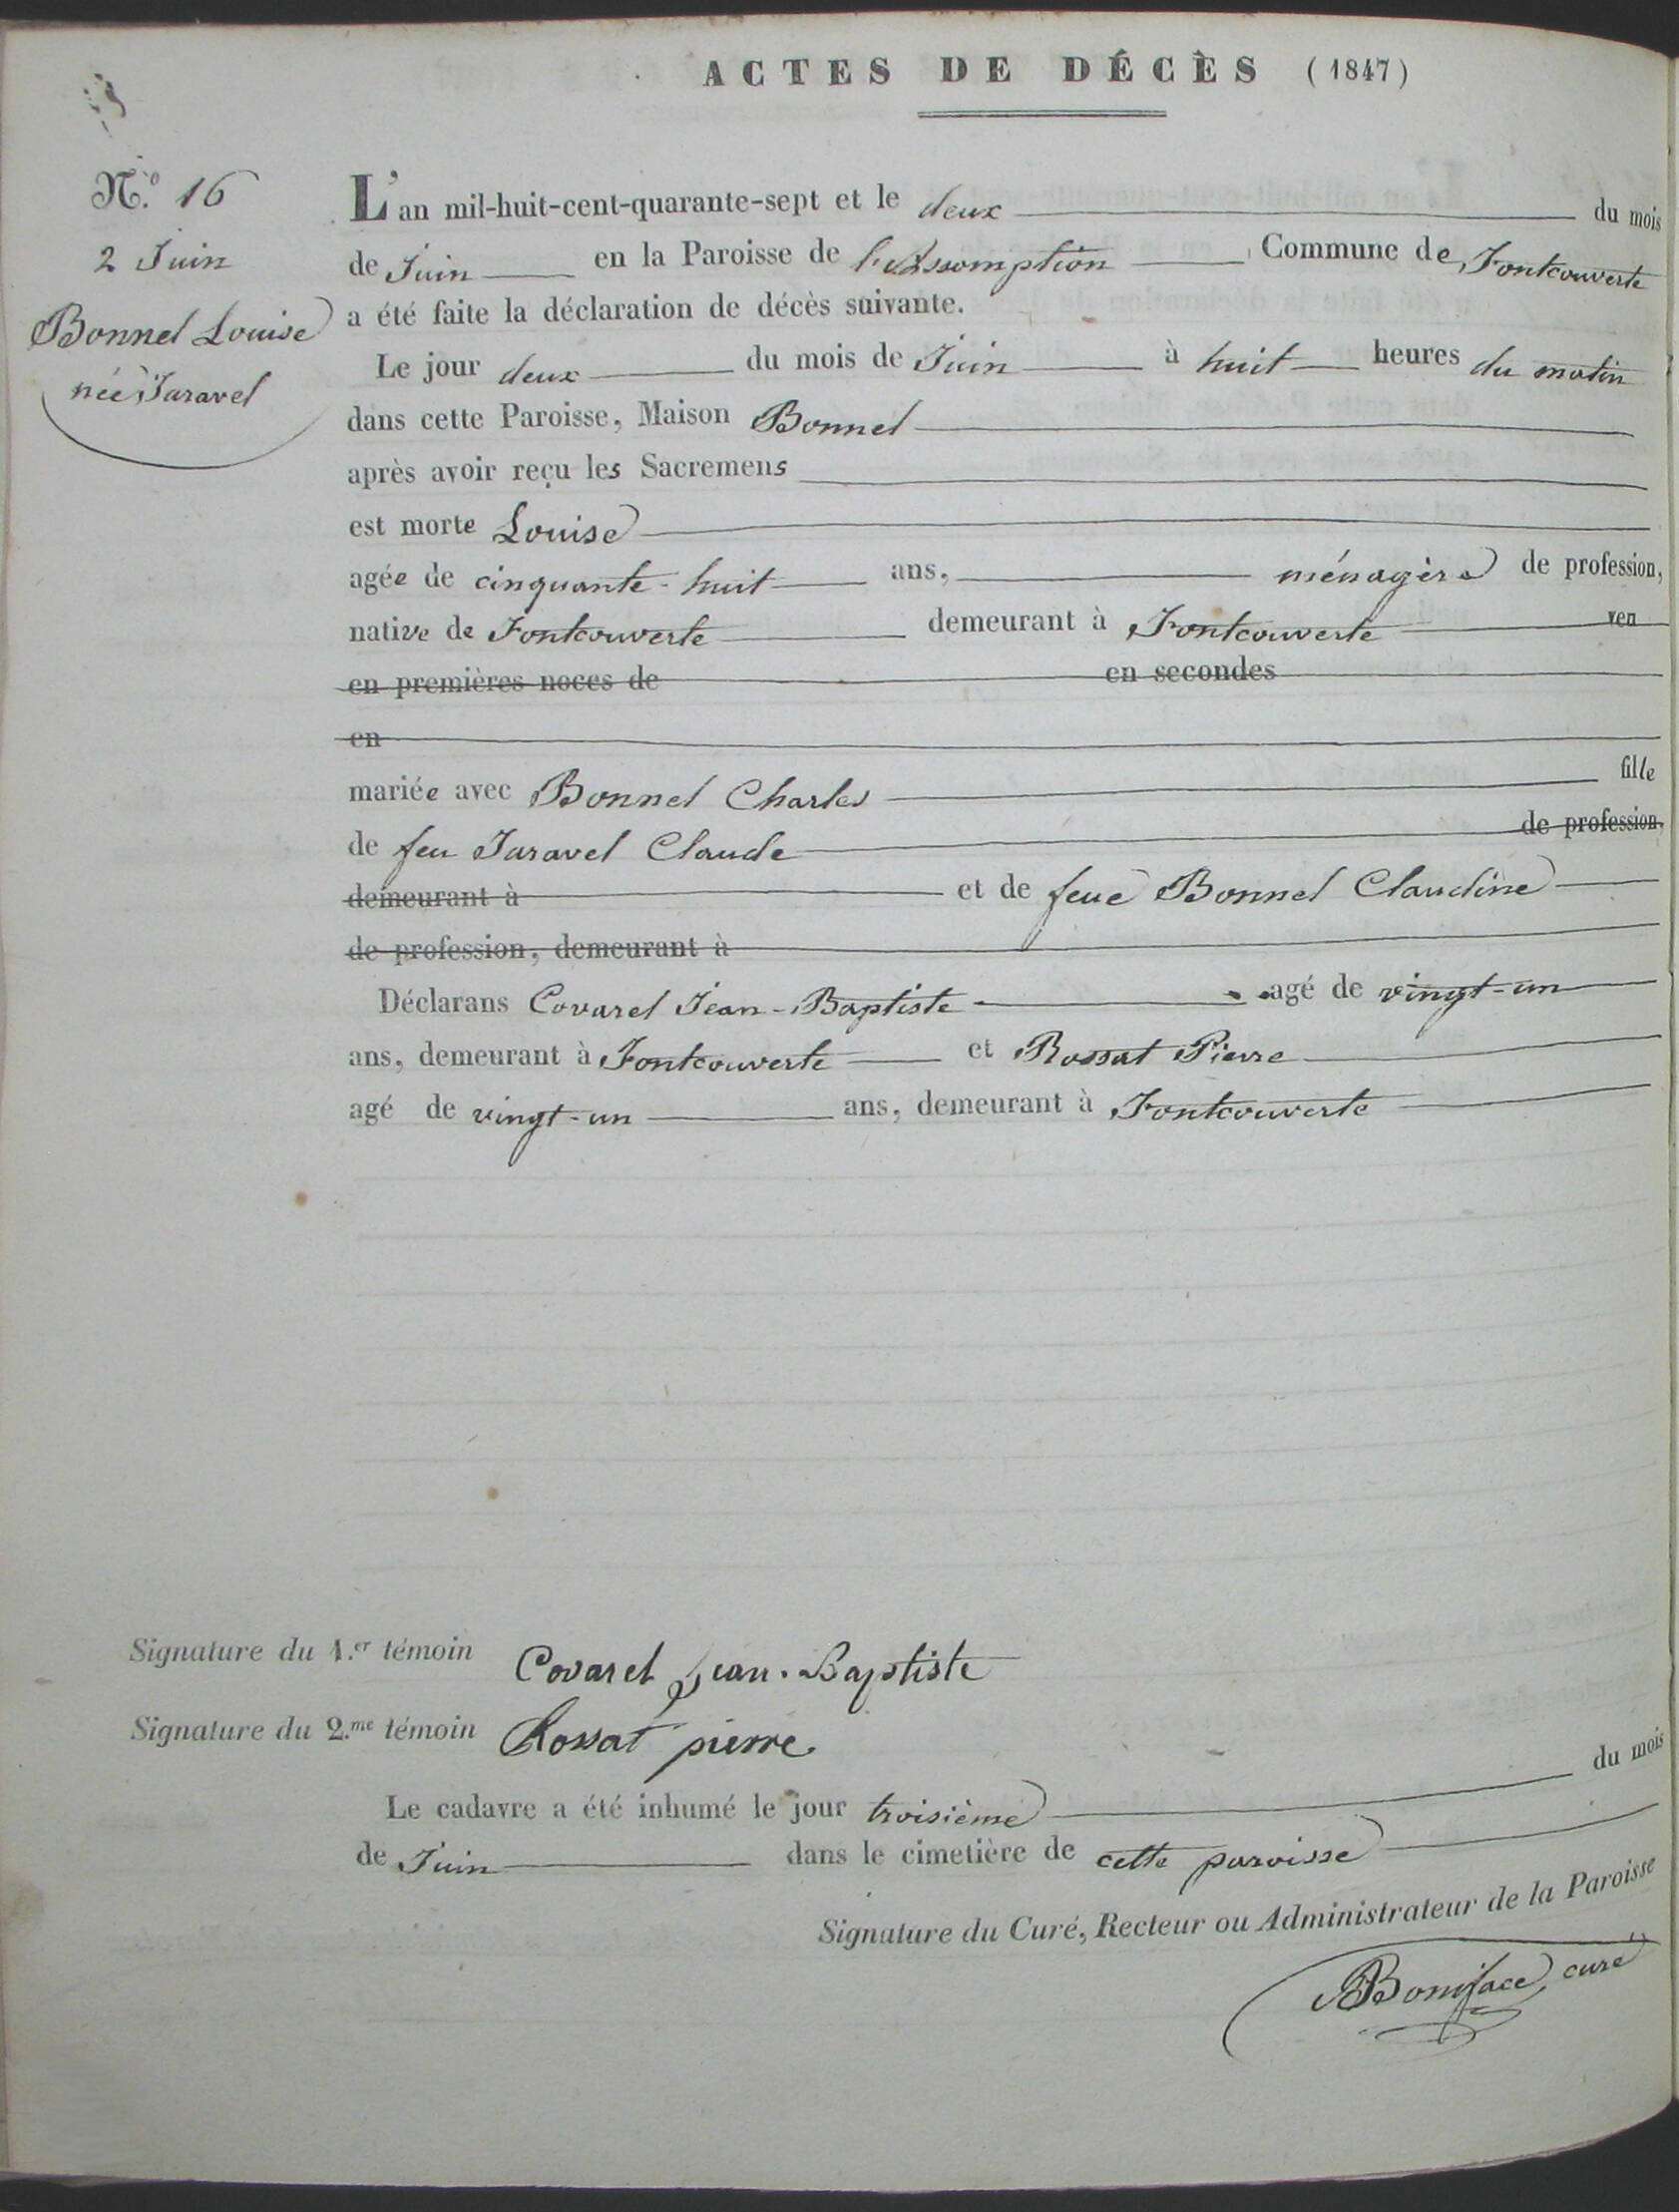 ACTES DE DÉCÈS (1847)
N.º 16
2 Juin
Bonnel Louise
née Jaravel
L'an mil-huit-cent-quarante-sept et le deux du mois
de Juin en la Paroisse de l'Assomption Commune de Fontcouverte
a été faite la déclaration de décès suivante.
Le jour deux du mois de Juin à huit heures du matin
dans cette Paroisse, Maison Bonnel
après avoir reçu les Sacremens
est morte Louise
agée de cinquante-huit ans, ménagère de profession,
native de Fontcouverte demeurant à Fontcouverte veu
en premières noces de en secondes
en
mariée avec Bonnel Charles fille
de feu Jaravel Claude de profession,
demeurant à et de feue Bonnel Claudine
de profession, demeurant à
Déclarans Covarel Jean-Baptiste agé de vingt-un
ans, demeurant à Fontcouverte et Rossat Pierre
agé de vingt-un ans, demeurant à Fontcouverte
Signature du 1.er témoin Covarel Jean-Baptiste
Signature du 2.me témoin Rossat pierre
Le cadavre a été inhumé le jour troisième du mois
de Juin dans le cimetière de cette paroisse
Signature du Curé, Recteur ou Administrateur de la Paroisse
Boniface, curé